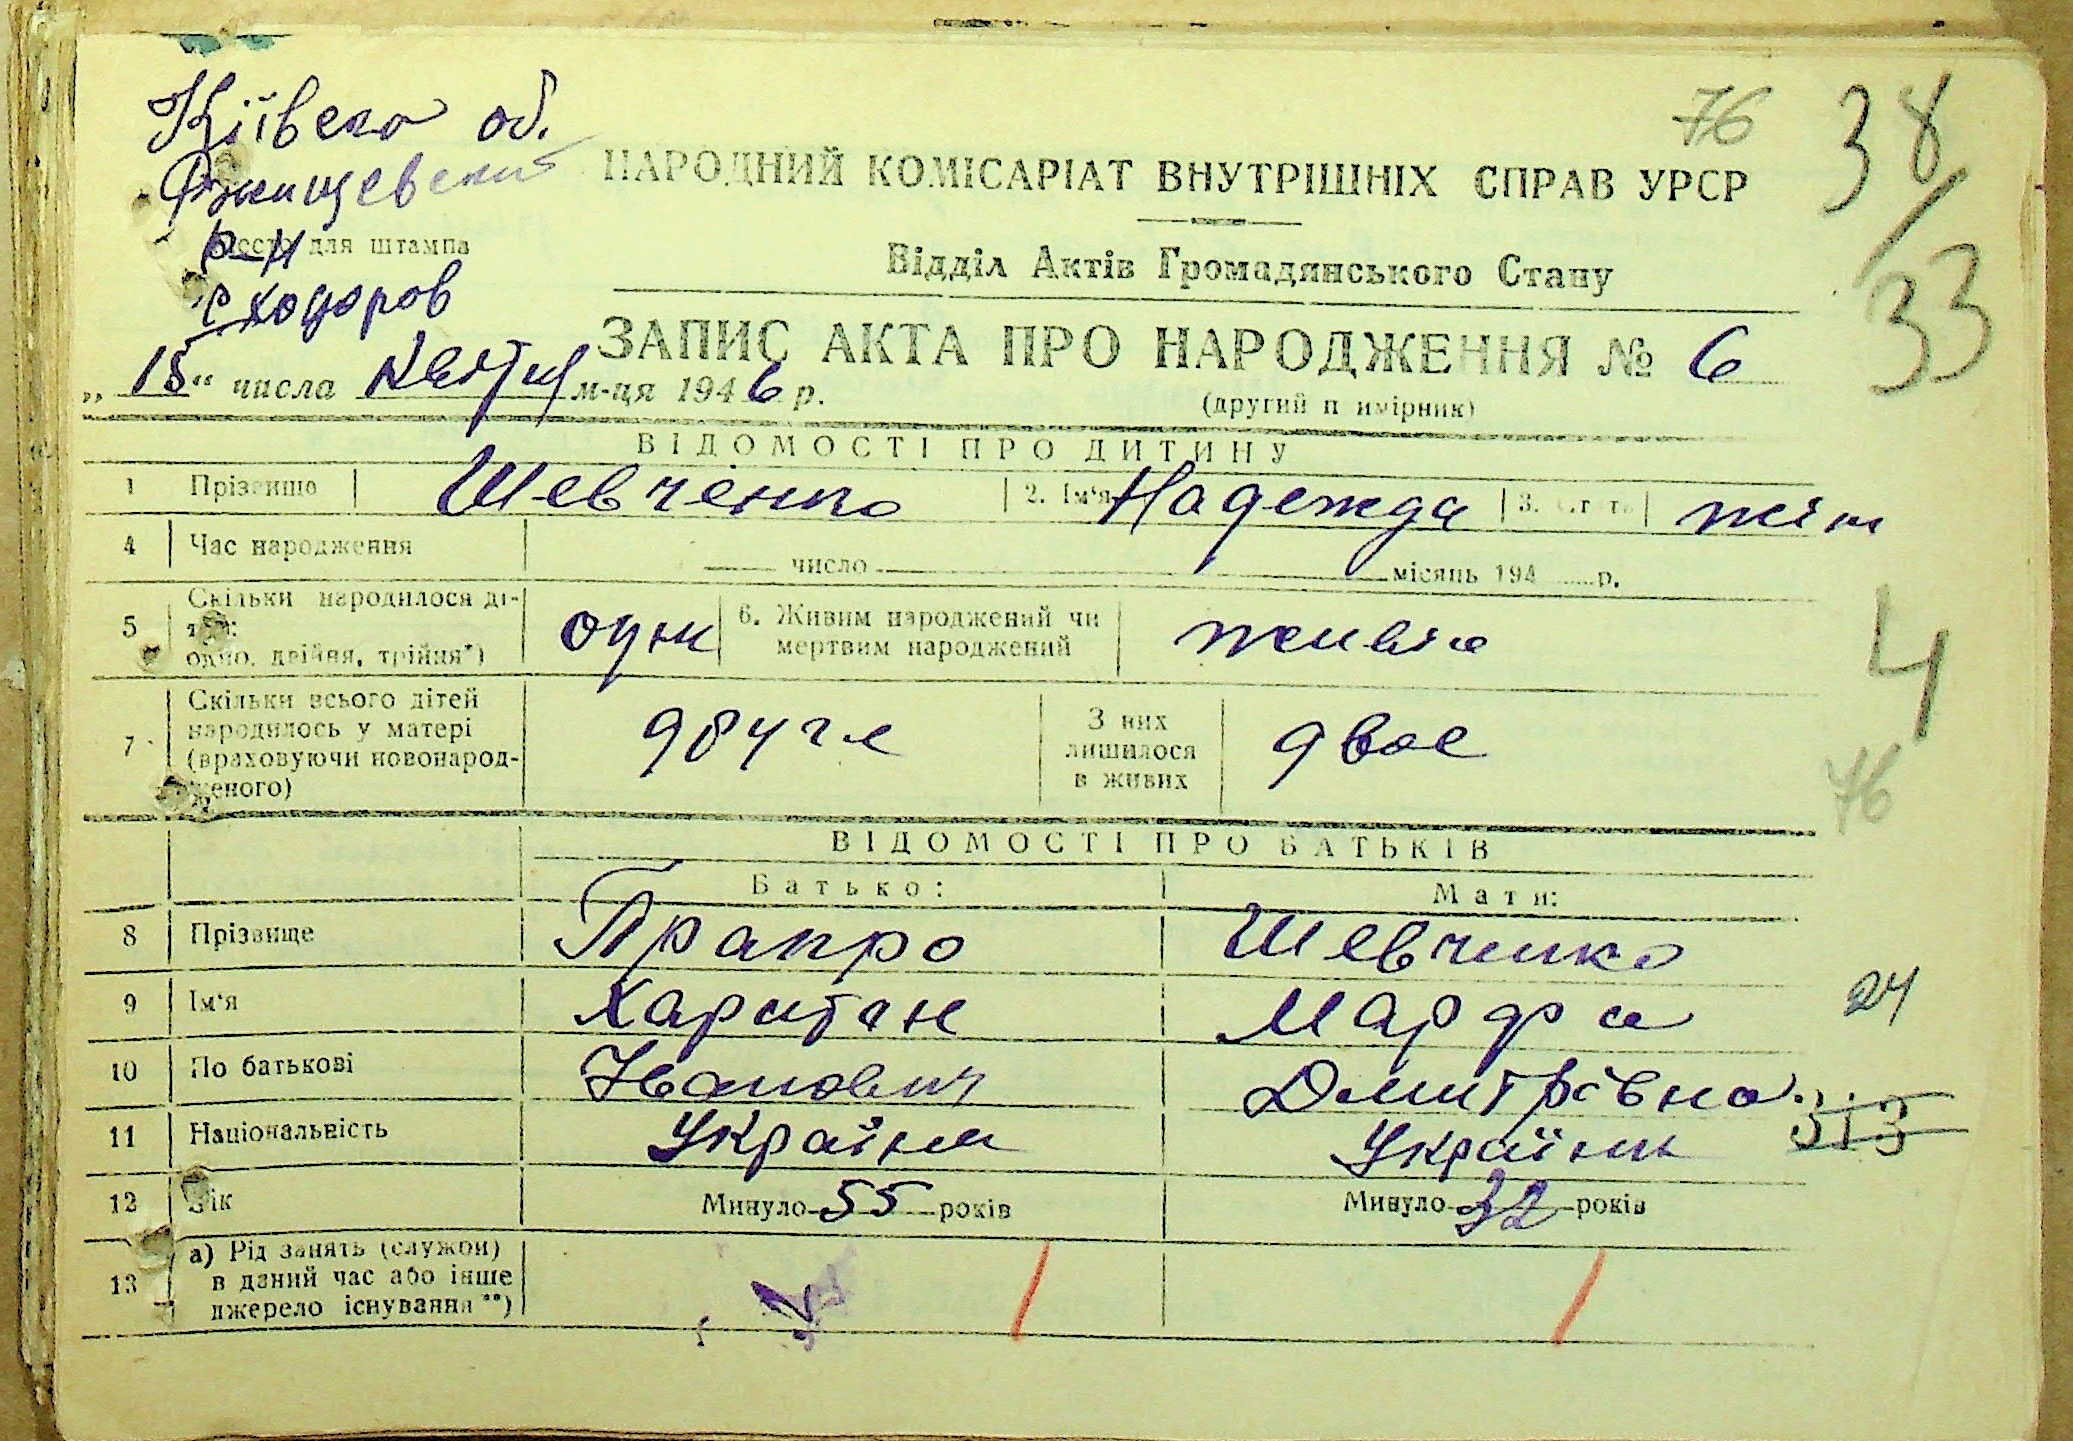 76
38/33
Київска об.
Ржищевский
р-н
Место для штампа
с Ходоров
НАРОДНИЙ КОМІСАРІАТ ВНУТРІШНІХ СПРАВ УРСР
Відділ Актів Громадянського Стану
ЗАПИС АКТА ПРО НАРОДЖЕННЯ № 6
„15“ числа м-ця 1946 р.
(другий п имірник)
ВІДОМОСТІ ПРО ДИТИНУ
1 Прізвище Шевченко 2. Ім‘я Надежда 3. Стать жін
4 Час народження число місяць 194 р.
5 Скільки народилося ді-
тей:
одно, двійня, трійня*) одн 6. Живим народжений чи
мертвим народжений живая
4
7 Скільки всього дітей
народилось у матері
(враховуючи новонарод-
женого) друге З них
лишилося
в живих двое
76
ВІДОМОСТІ ПРО БАТЬКІВ
Батько: Мати:
8 Прізвище Прапро Шевченко
9 Ім‘я Харитон Марфа
24
10 По батькові Иванович Дмитрівна
313
11 Національність Україн Україн
12 Вік Минуло 55 років Минуло 32 років
13 а) Рід занять (служби)
в даний час або інше
джерело існування **)